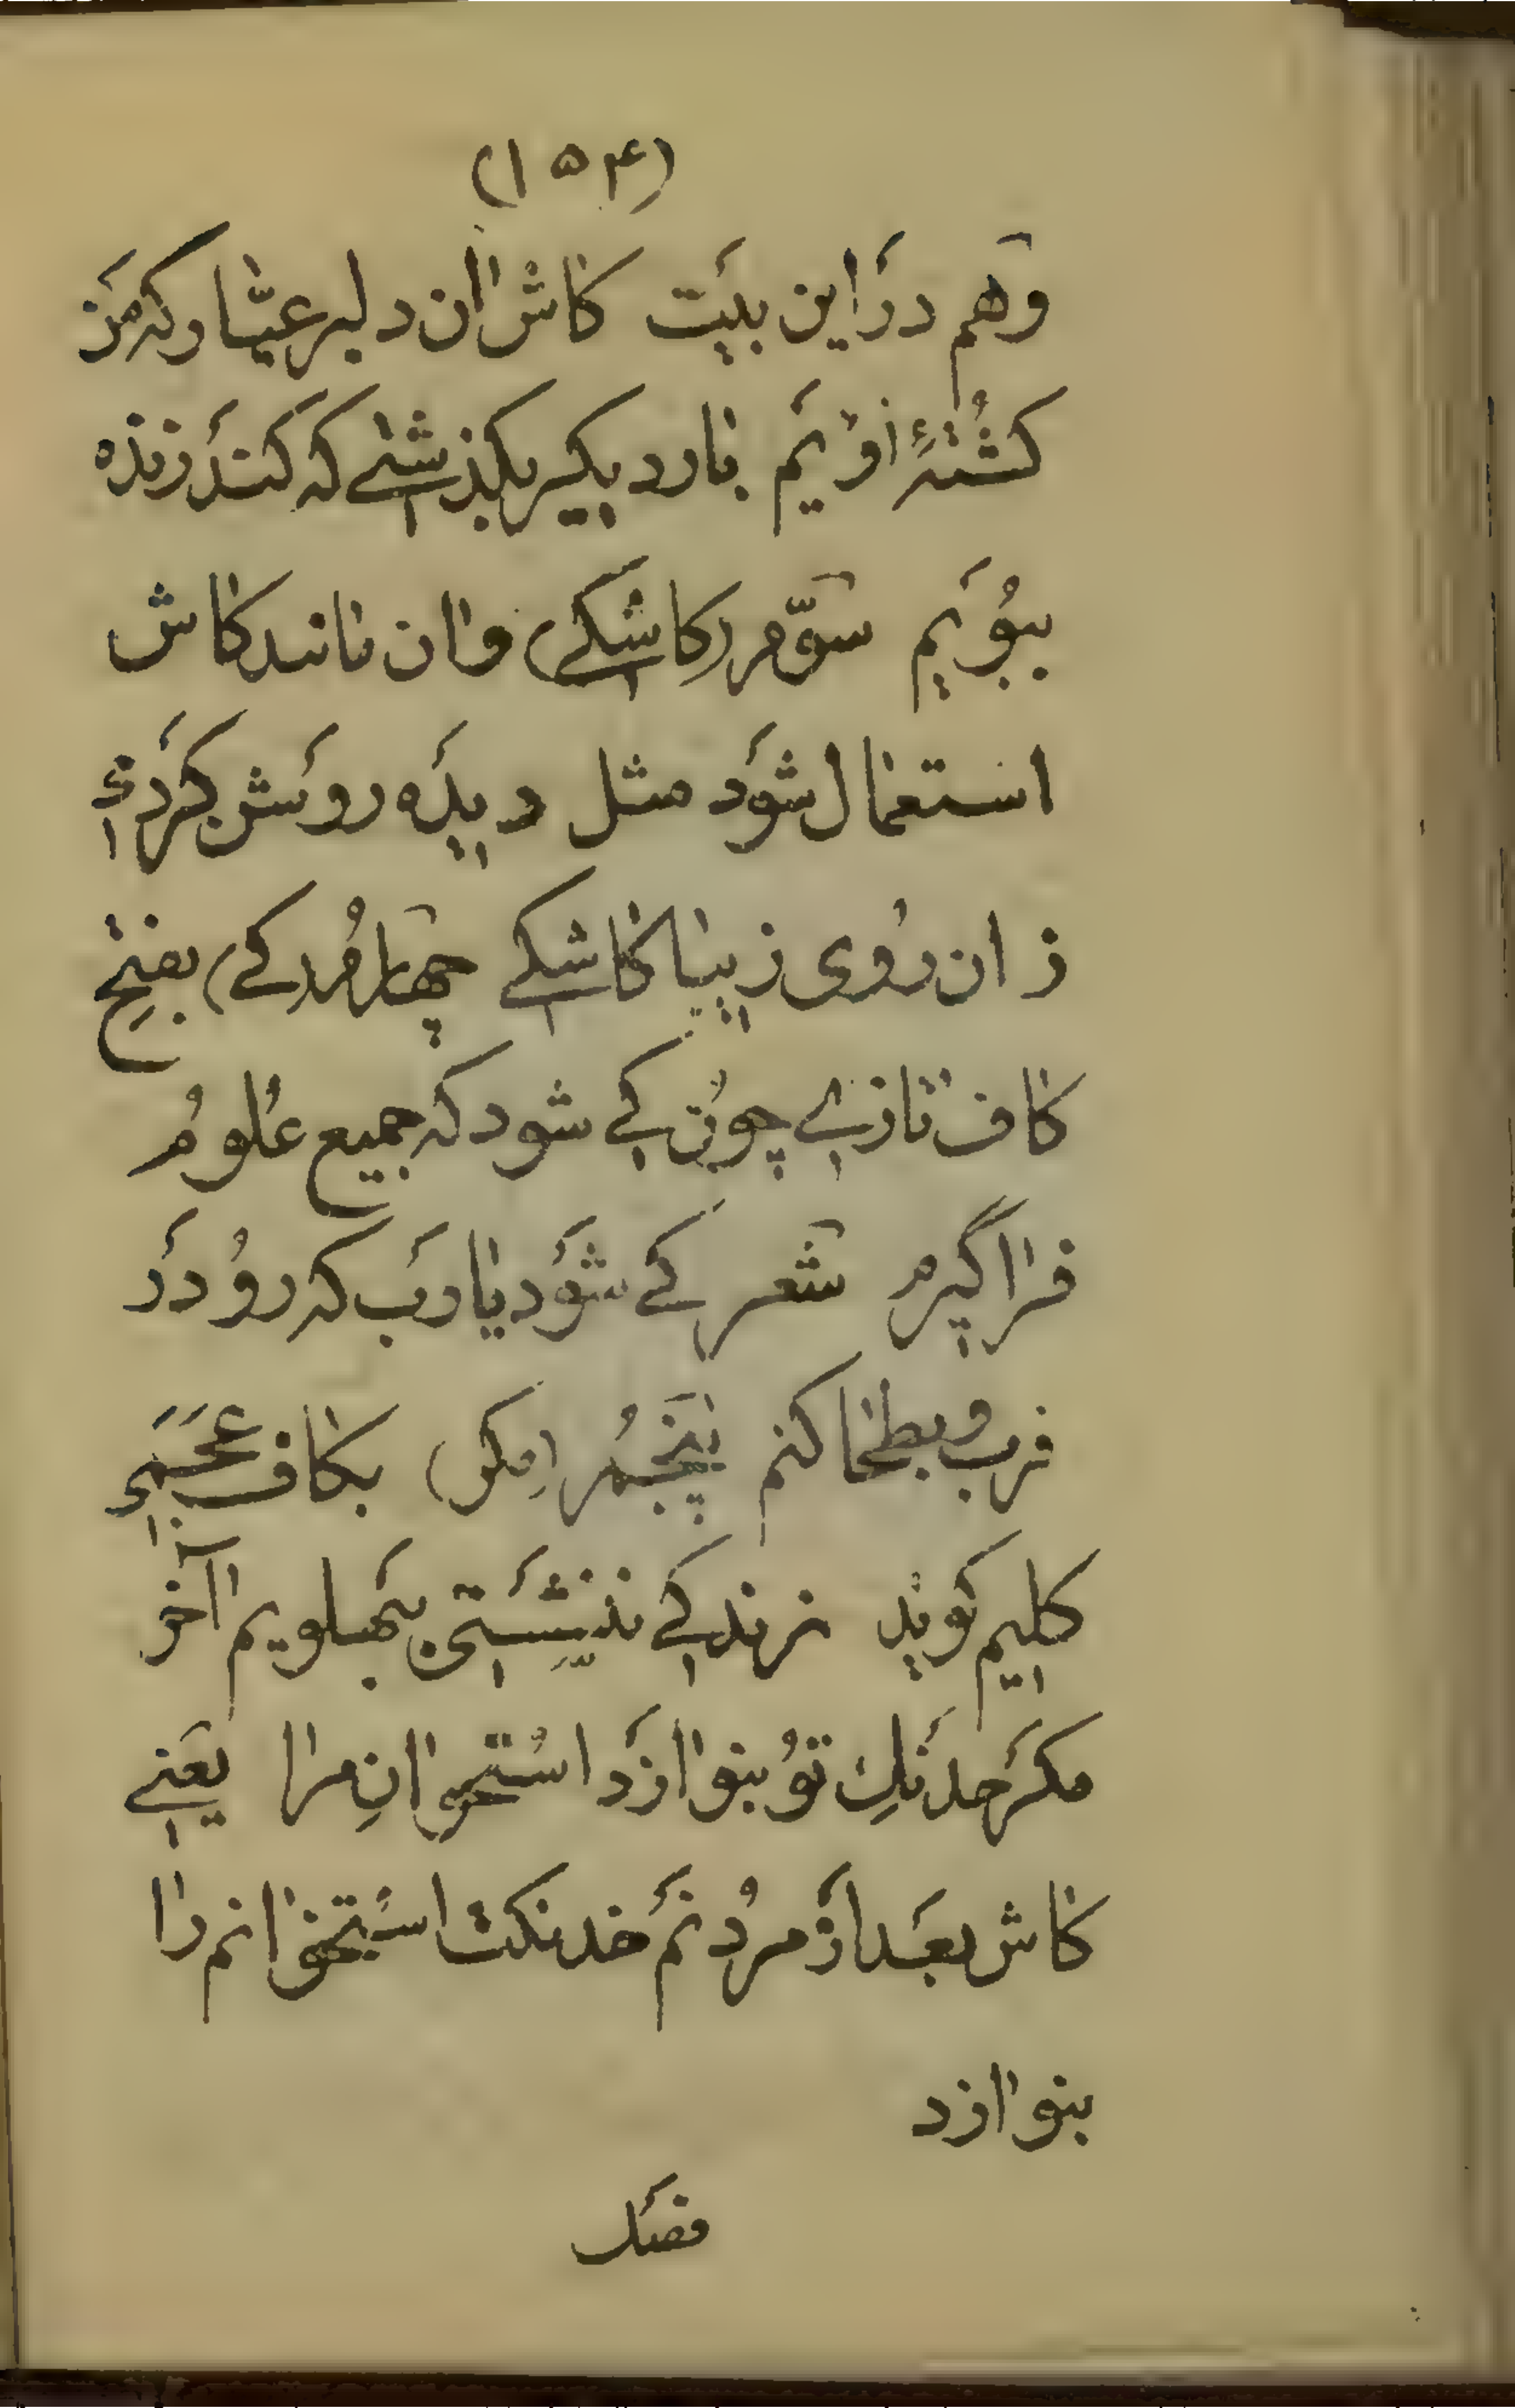 (۱۵۴)
وهم در این بیت کاش ان دلبر عیّار که من
کُشتهٔ اویم بار دیگر بگذشتی که کند زنده
ببویم سوّم (کاشکی) و ان مانند کاش
استعمال شود مثل دیده روشن کردمی
ز ان روی زیبا کاشکی چهارم (کی) بفتح
کاف تازی چون کی شود که جمیع علوم
فرا گیرم شعر کی شود یارب که رو در
یثرب و بطحا کنم پنجم (مگر) بکاف عجمی
کلیم گوید نزندگی ننشستی بپهلویم آخر
مگر خدنگِ تو بنوازد استخوانِ مرا یعنی
کاش بعد از مردنم خدنگت استخوانم را
بنوازد
فصل